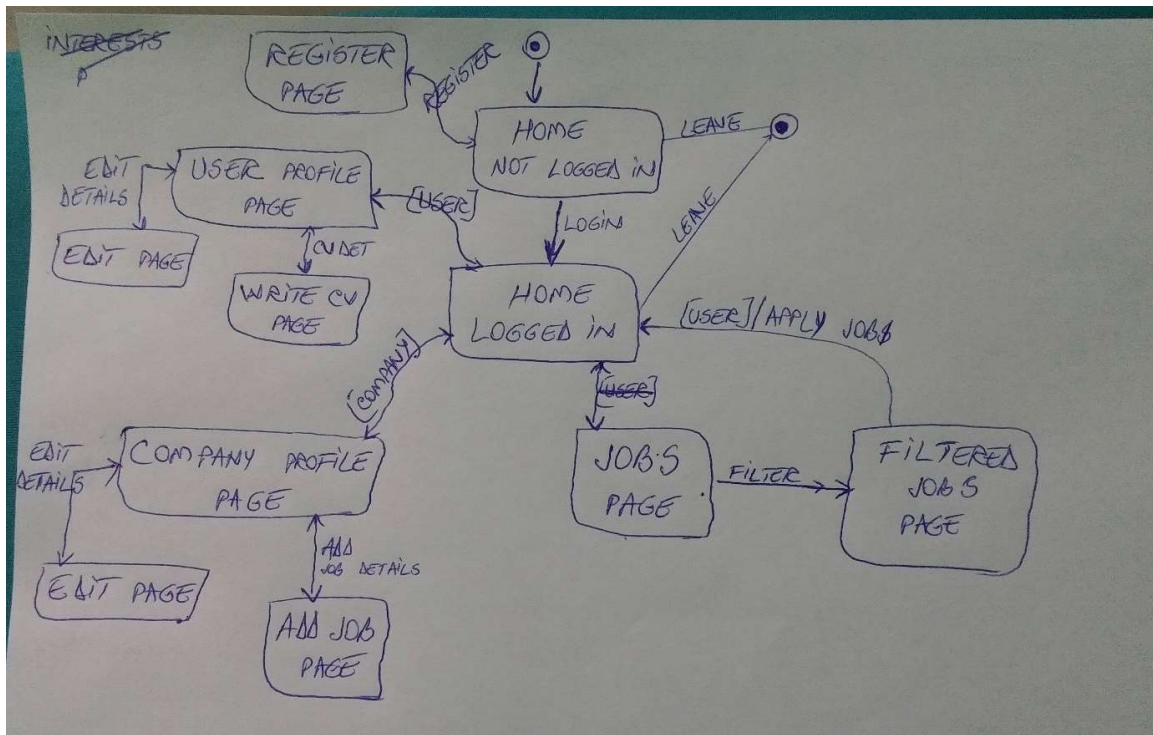 INTERESTS
REGISTER
PAGE
REGISTER
HOME
NOT LOGGED IN
LEAVE
EDIT
DETAILS
USER PROFILE
PAGE
[USER]
LOGIN
LEAVE
EDIT PAGE
CV DET
WRITE CV
PAGE
HOME
LOGGED IN
[USER]/APPLY JOBS
[COMPANY]
[USER]
EDIT
DETAILS
COMPANY PROFILE
PAGE
JOBS
PAGE
FILTER
FILTERED
JOBS
PAGE
ADD
JOB DETAILS
EDIT PAGE
ADD JOB
PAGE